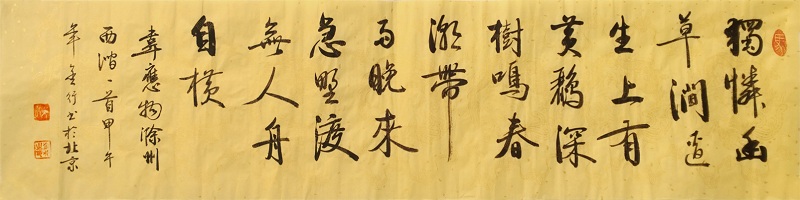 獨憐幽
草澗邊
生上有
黃鸝深
樹鳴春
潮帶
雨晚來
急野渡
無人舟
自橫
韋應物滁州
西澗一首甲午
年金行书於北京